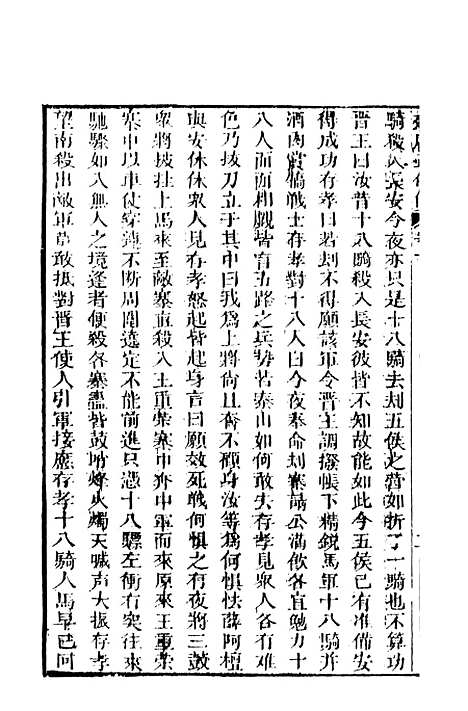 騎殺入長安今夜亦只是十八騎去刦五侯之營如折了一騎也不算功
晋王曰汝昔十八騎殺入長安彼皆不知故能如此今五侯已有准備安
得成功存孝曰若刦不得願該軍令晋王調撥帳下精銳馬軍十八騎并
酒肉賞犒戰士存孝對十八人曰今夜奉命刦寨請公滿飲各宜勉力十
八人面面相覷皆言五路之兵勢若泰山如何敢去存孝見眾人各有难
色乃拔刀立于其中曰我爲上將尚且奮不顧身汝等爲何惧怯薛阿檀
與安休休眾人見存孝怒起皆起身言曰願效死戰何惧之有夜將三鼓
眾將披挂上馬來至敵寨直殺入王重榮寨中奔中軍而來原來王重榮
寨中以車仗穿連不斷周圍遶定不能前進只憑十八騎左衝右突往來
馳驟如入無人之境逢者便殺各寨盡皆鼓噪烽火燭天喊声大振存孝
望南殺出敵軍誰敢抵對晋王使人引軍接應存孝十八騎人馬早已回